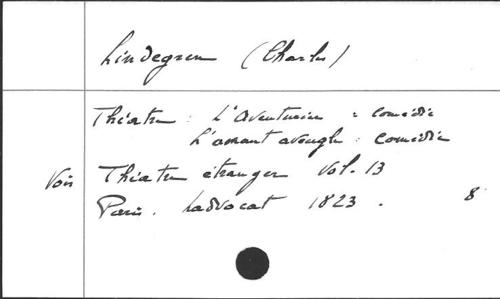 Lindegren (Charles)
Théatre : L'Aventurier : comédie
L'amant aveugle : comédie
Voir Théatre étranger Vol. 13
Paris. Ladvocat 1823. 8